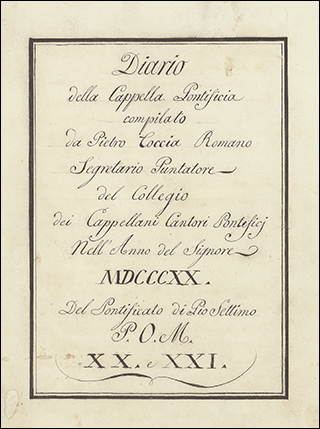 Diario
della Cappella Pontificia
compilato
da Pietro Coccia Romano
Segretario Puntatore
del Collegio
dei Cappellani Cantori Pontificj
Nell'Anno del Signore
MDCCCXX.
Del Pontificato di Pio Settimo
P. O. M.
XX. e XXI.